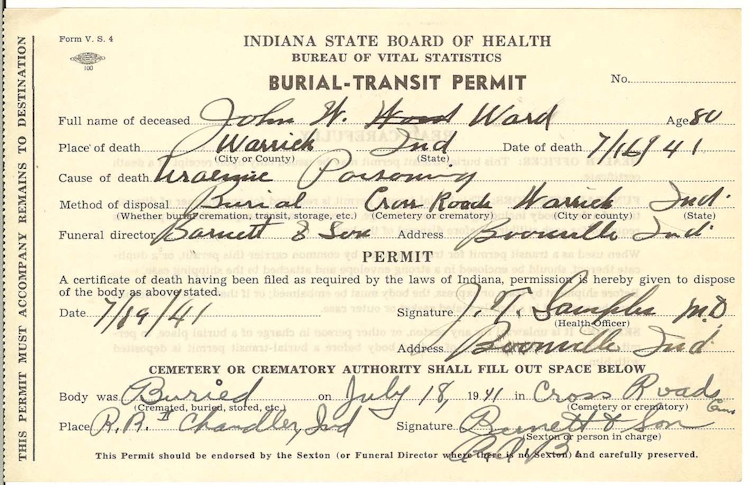 Form V. S. 4
INDIANA STATE BOARD OF HEALTH
BUREAU OF VITAL STATISTICS
100
BURIAL-TRANSIT PERMIT
No.
Full name of deceased John W. Ward Age 80
Place of death Warrick Ind Date of death 7/16/41
(City or County) (State)
Cause of death Uraemic Poisoning
Method of disposal Burial Cross Roads Warrick Ind.
(Whether burial, cremation, transit, storage, etc.) (Cemetery or crematory) (City or county) (State)
Funeral director Barnett & Son Address Boonville Ind.
PERMIT
A certificate of death having been filed as required by the laws of Indiana, permission is hereby given to dispose
of the body as above stated.
Date 7/19/41 Signature T. Samples M.D
(Health Officer)
Address Boonville Ind.
CEMETERY OR CREMATORY AUTHORITY SHALL FILL OUT SPACE BELOW
Body was Buried on July 18, 1941 in Cross Roads Cem
(Cremated, buried, stored, etc.) (Cemetery or crematory)
Place R.R. Chandler, Ind Signature Barnett & Son
(Sexton or person in charge)
This Permit should be endorsed by the Sexton (or Funeral Director where there is no Sexton) and carefully preserved.
THIS PERMIT MUST ACCOMPANY REMAINS TO DESTINATION